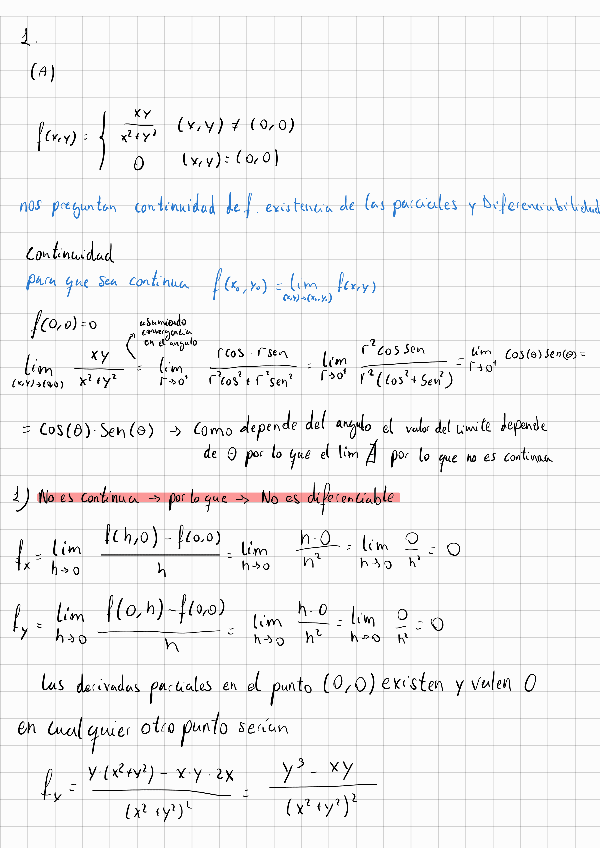 1.
(A)
f(x,y) = { xy / x²+y² (x,y) ≠ (0,0)
0 (x,y) = (0,0)
nos preguntan continuidad de f. existencia de las parciales y Diferenciabilidad
Continuidad
para que sea continua f(x₀,y₀) = lim (x,y)→(x₀,y₀) f(x,y)
f(0,0)=0
asumiendo convergencia en el angulo
lim (x,y)→(0,0) xy / x²+y² = lim r→0⁺ rcos · rsen / r²cos² + r²sen² = lim r→0⁺ r²cos sen / r²(cos²+sen²) = lim r→0⁺ cos(θ)sen(θ) =
= cos(θ)·sen(θ) → como depende del angulo el valor del limite depende
de θ por lo que el lim ∄ por lo que no es continua
1) No es continua → por lo que → No es diferenciable
fx = lim h→0 f(h,0) - f(0,0) / h = lim h→0 h·0 / h² = lim h→0 0 / h² = 0
fy = lim h→0 f(0,h) - f(0,0) / h = lim h→0 h·0 / h² = lim h→0 0 / h² = 0
Las derivadas parciales en el punto (0,0) existen y valen 0
en cualquier otro punto serian
fx = y·(x²+y²) - x·y·2x / (x²+y²)² = y³ - xy / (x²+y²)²